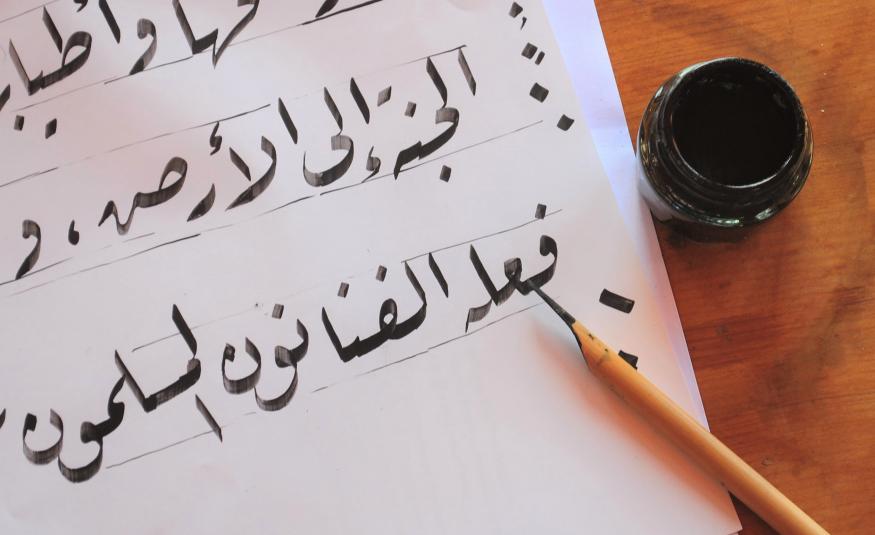 فيها وأطيا
الجنة إلى الأرض، و
فعله الفنانون المسلمون